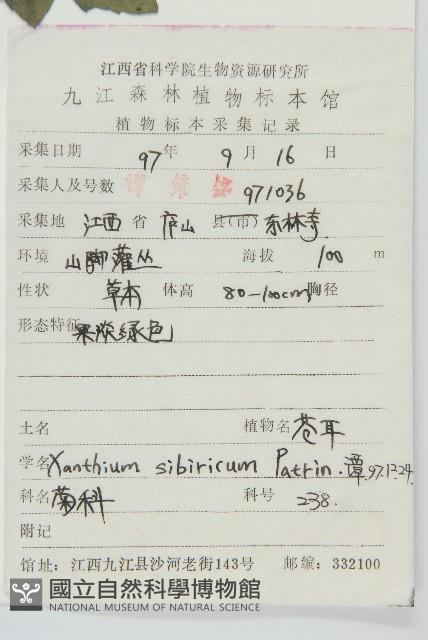 江西省科学院生物资源研究所
九江森林植物标本馆
植物标本采集记录
采集日期 97年 9月 16日
采集人及号数 譚策銘 971036
采集地 江西省 庐山 县(市) 东林寺
环境 山脚灌丛 海拔 100 m
性状 草本 体高 80-100cm 胸径
形态特征 果淡绿色
土名 植物名 苍耳
学名 Xanthium sibiricum Patrin. 谭 97.12.24.
科名 菊科 科号 238.
附记
馆址: 江西九江县沙河老街143号 邮编: 332100
國立自然科學博物館
NATIONAL MUSEUM OF NATURAL SCIENCE